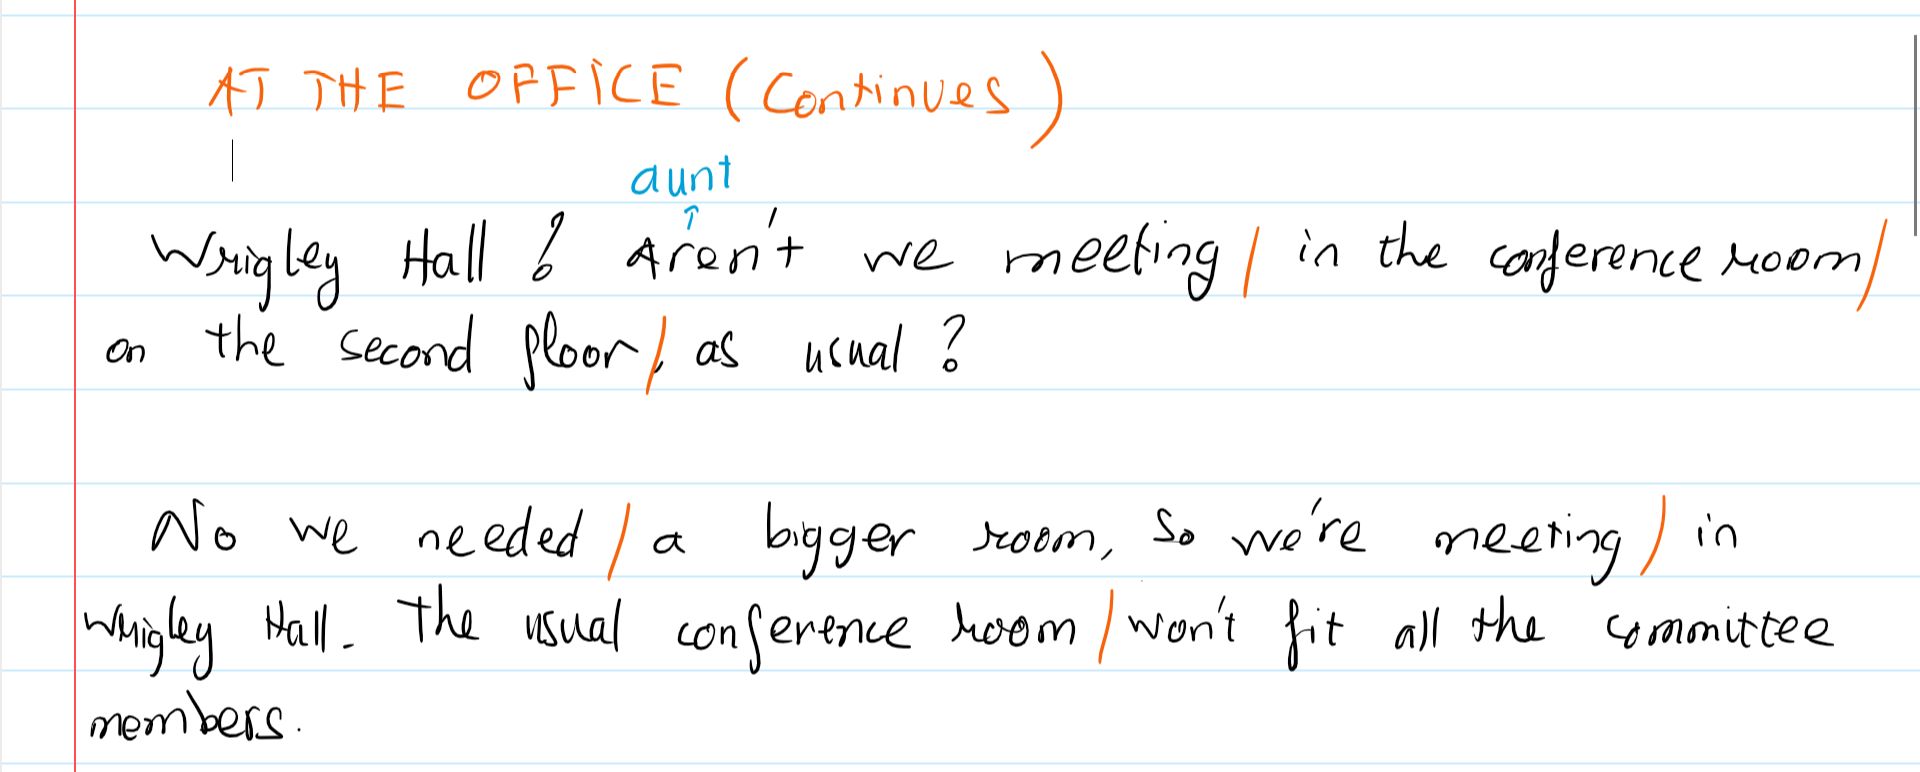 AT THE OFFICE (Continues)
aunt
↑
Wrigley Hall? Aren't we meeting / in the conference room /
on the second floor /, as usual?
No we needed / a bigger room, So we're meeting / in
Wrigley Hall. The usual conference room / won't fit all the committee
members.